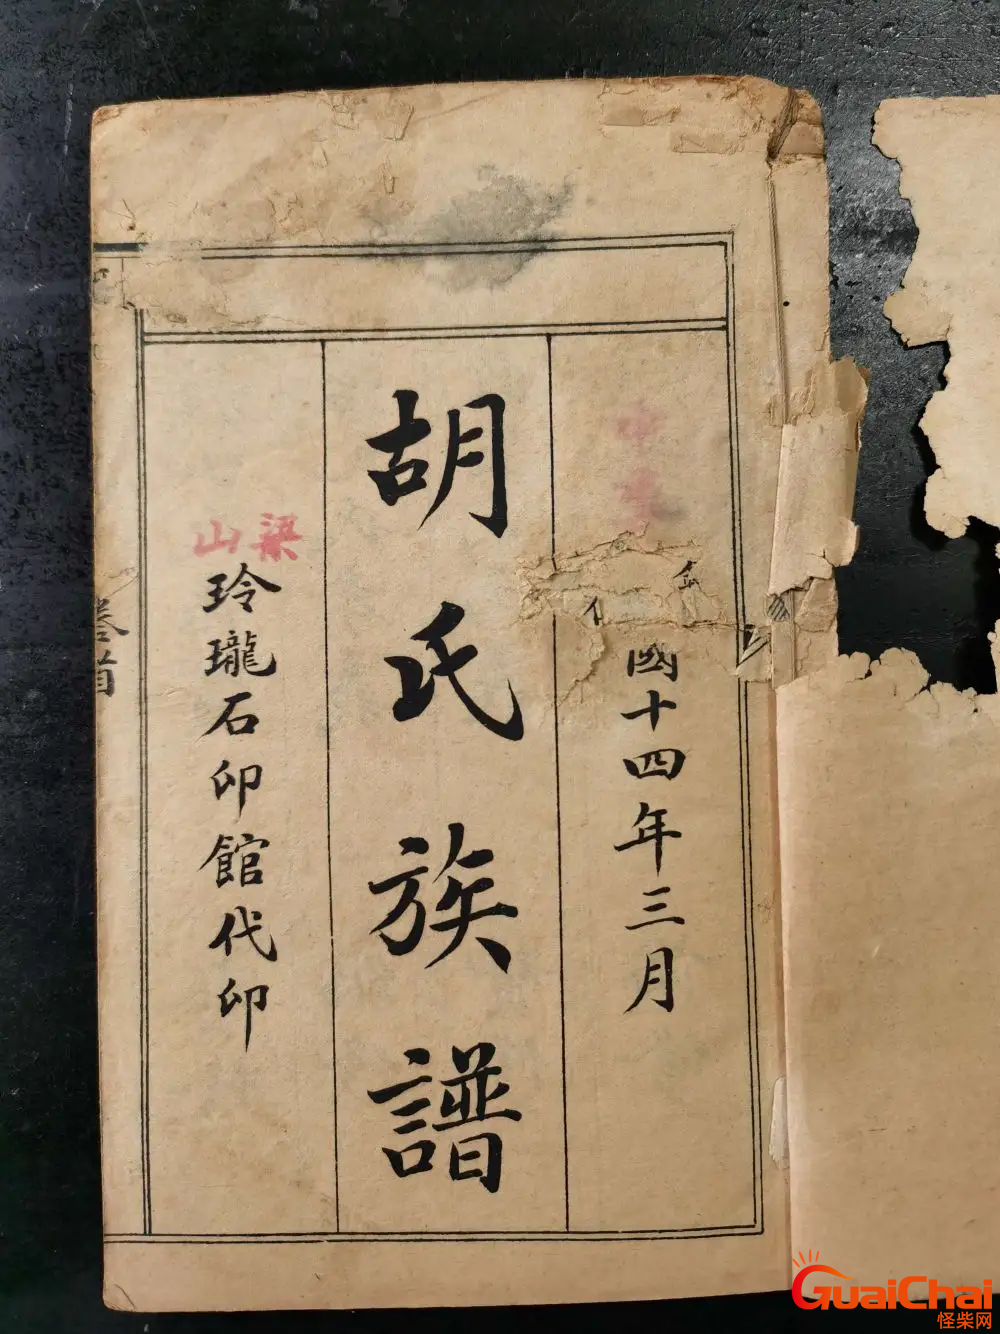 國十四年三月
胡氏族譜
梁山
玲瓏石印館代印
卷首
GuaiChai
怪柴网